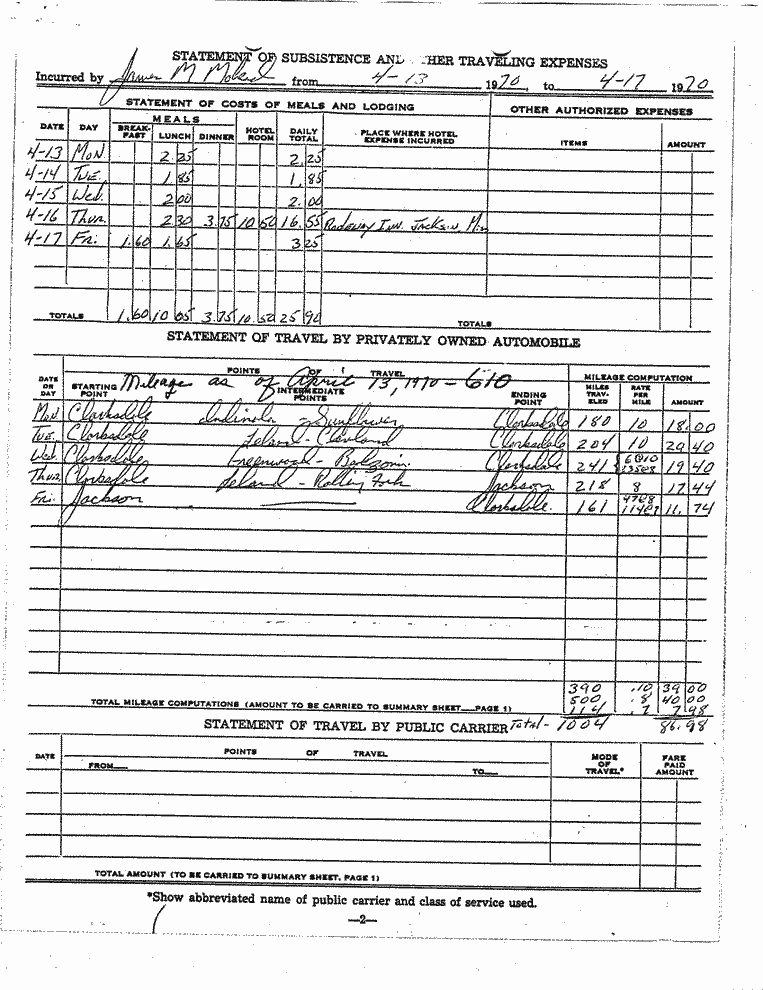 STATEMENT OF SUBSISTENCE AND THER TRAVELING EXPENSES
Incurred by James M from 4-13 1970, to 4-17 1970
STATEMENT OF COSTS OF MEALS AND LODGING OTHER AUTHORIZED EXPENSES
DATE DAY MEALS BREAK-FAST LUNCH DINNER HOTEL ROOM DAILY TOTAL PLACE WHERE HOTEL EXPENSE INCURRED ITEMS AMOUNT
4-13 Mon 2.25 2.25
4-14 Tue. 1.85 1.85
4-15 Wed. 2.00 2.00
4-16 Thur. 2.30 3.75 10.50 16.55 Rodeway Inn. Jackson Miss
4-17 Fri. 1.60 1.65 3.25
TOTALS 1.60 10.05 3.75 10.50 25.90 TOTALS
STATEMENT OF TRAVEL BY PRIVATELY OWNED AUTOMOBILE
DATE OR DAY POINTS OF TRAVEL MILEAGE COMPUTATION
STARTING POINT INTERMEDIATE POINTS ENDING POINT MILES TRAV-ELED RATE PER MILE AMOUNT
Mileage as of April 13, 1970 - 610
Mon Clarksdale Indianola - Sunflower Clarksdale 180 10 18.00
Tue. Clarksdale Leland - Cleveland Clarksdale 204 10 20.40
Wed. Clarksdale Greenwood - Belzoni Clarksdale 241 6@10 235@8 19.40
Thur. Clarksdale Leland - Rolling Fork Jackson 218 8 17.44
Fri. Jackson Clarksdale. 161 47@8 114@7 11.74
390 .10 39.00
500 .8 40.00
TOTAL MILEAGE COMPUTATIONS (AMOUNT TO BE CARRIED TO SUMMARY SHEET—PAGE 1) 114 .7 7.98
STATEMENT OF TRAVEL BY PUBLIC CARRIER Total - 1004 86.98
DATE POINTS OF TRAVEL MODE OF TRAVEL* FARE PAID AMOUNT
FROM— TO—
TOTAL AMOUNT (TO BE CARRIED TO SUMMARY SHEET, PAGE 1)
*Show abbreviated name of public carrier and class of service used.
—2—